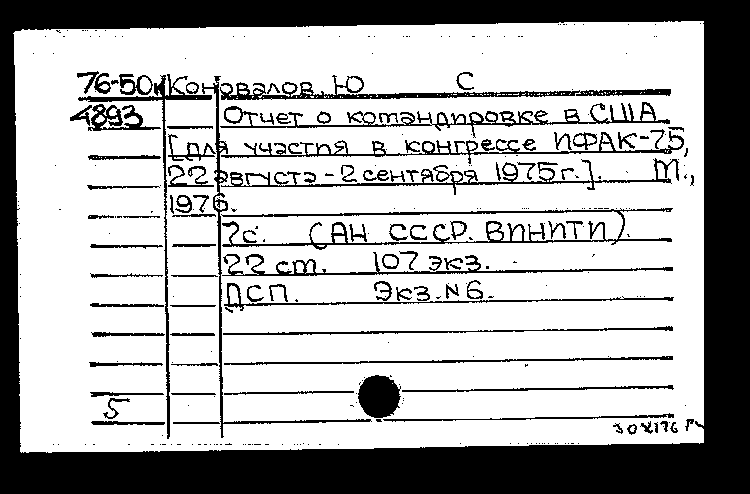 76-50к Коновалов, Ю С
4893 Отчет о командировке в США
[для участия в конгрессе ИФАК-75,
22 августа - 2 сентября 1975 г.]. М.,
1976.
7с. (АН СССР. ВИНИТИ).
22 ст. 107 экз.
ДСП. Экз. N 6.
5